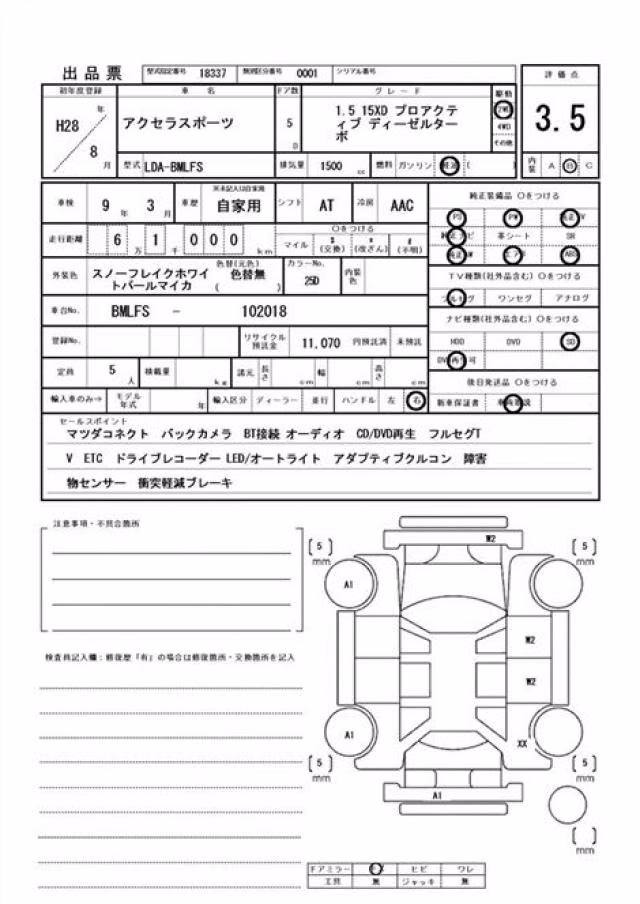 出品票 型式指定番号 18337 類別区分番号 0001 シリアル番号
評価点
初年度登録 車名 ドア数 グレード 駆動
H28年 アクセラスポーツ 5 D 1.5 15XD プロアクティブ ディーゼルターボ 2WD 3.5
4WD
8月 その他
型式 LDA-BMLFS 排気量 1500 cc 燃料 ガソリン 軽油 ( ) 内装 A B C
車検 9年 3月 車歴 ※未記入は自家用 自家用 シフト AT 冷房 AAC 純正装備品 Oをつける
PS PW 純正TV
走行距離 6万 1千 000 km Oをつける 純正ナビ 革シート SR
マイル $(交換) *(改ざん) #(不明) 純正AW エアB ABS
外装色 スノーフレイクホワイトパールマイカ 色替(元色) 色替無 ( ) カラーNo. 25D 内装色 TV種類(社外品含む) Oをつける
フルセグ ワンセグ アナログ
車台No. BMLFS - 102018 ナビ種類(社外品含む) Oをつける
登録No. リサイクル預託金 11,070 円預託済 未預託 HDD DVD SD
DVD再生可
定員 5人 積載量 kg 諸元 長さ cm 幅 cm 高さ cm 後日発送品 Oをつける
輸入車のみ⇒ モデル年式 年 輸入区分 ディーラー 並行 ハンドル 左 右 新車保証書
セールスポイント
マツダコネクト バックカメラ BT接続 オーディオ CD/DVD再生 フルセグT
V ETC ドライブレコーダー LED/オートライト アダプティブクルコン 障害
物センサー 衝突軽減ブレーキ
注意事項・不具合箇所
W2
[5] mm
[5] mm
A1
W2
検査員記入欄:修復歴「有」の場合は修復箇所・交換箇所を記入
W2
A1
XX
[5] mm
[5] mm
A1
[ ] mm
ドアミラー キズ ヒビ ワレ
工具 無 ジャッキ 無